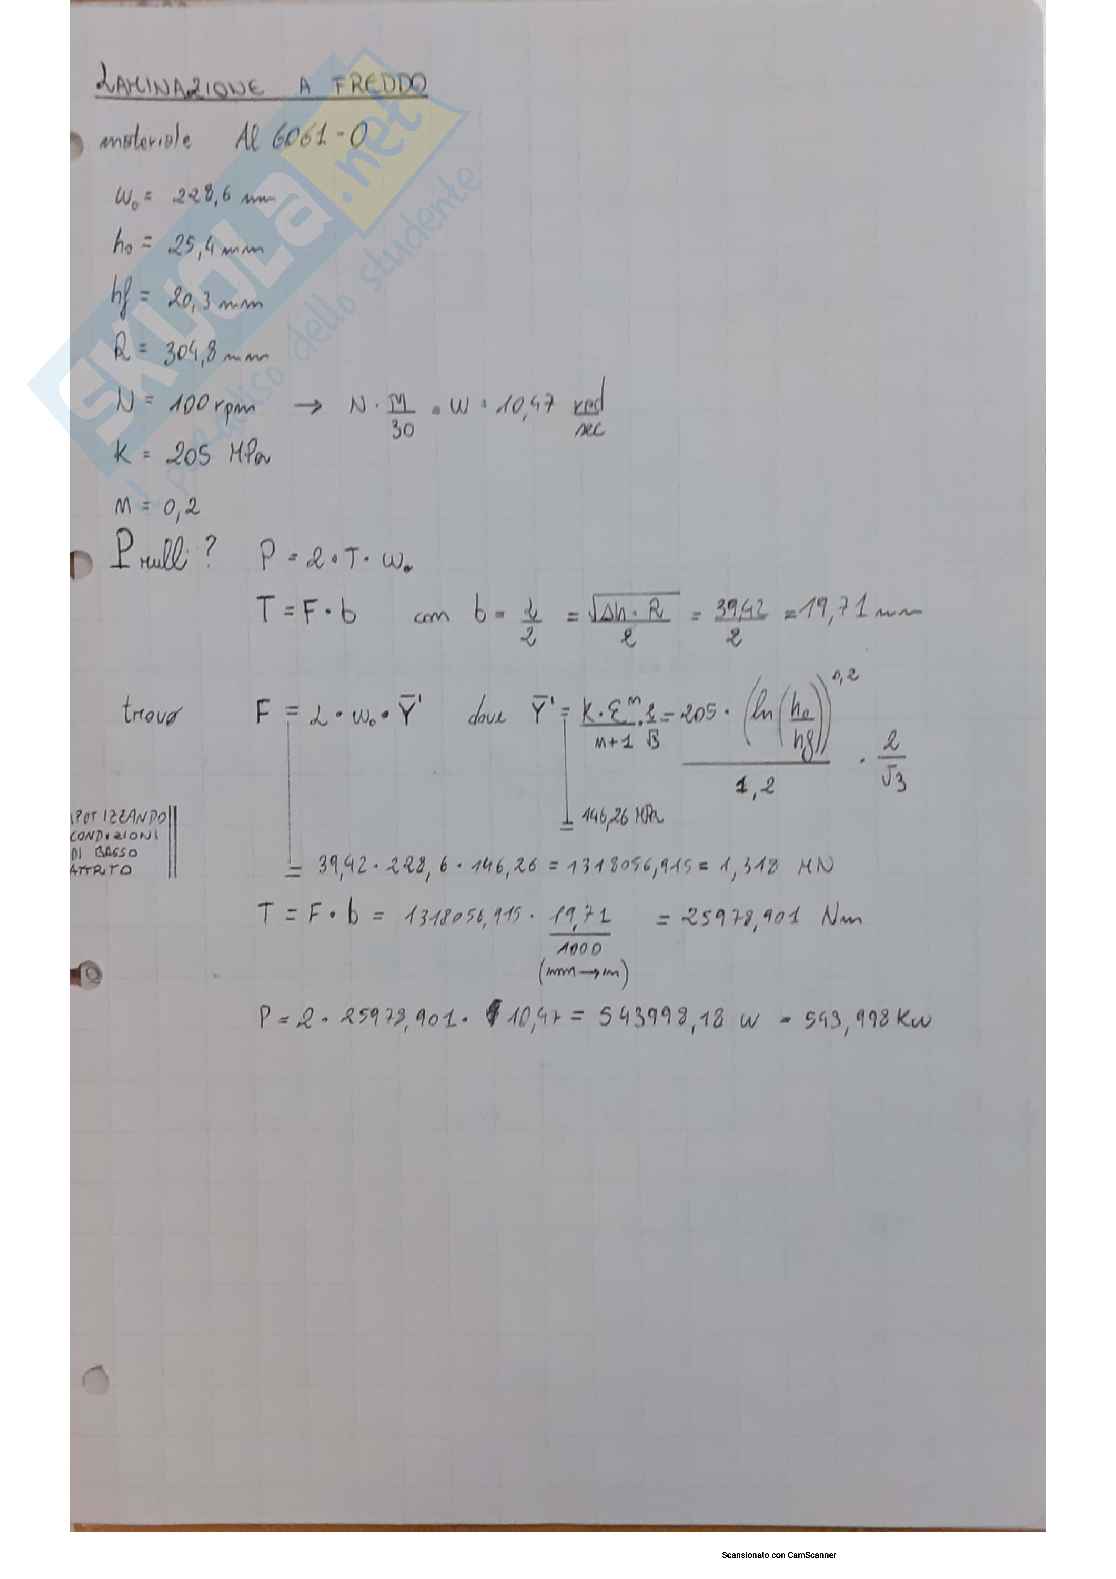 LAMINAZIONE A FREDDO
materiale Al 6061-O
w₀ = 228,6 mm
h₀ = 25,4 mm
hf = 20,3 mm
R = 304,8 mm
N = 100 rpm → N · π/30 = W = 10,47 rad/sec
K = 205 MPa
n = 0,2
P rulli? P = 2 · T · w₀
T = F · b con b = L/2 = √(Δh · R)/2 = 39,42/2 = 19,71 mm
trovo F = L · w₀ · Ȳ' dove Ȳ' = K · Ɛⁿ/(n+1) · 2/√3 = 205 · (ln(h₀/hf))^0,2/1,2 · 2/√3
= 146,26 MPa
IPOTIZZANDO
CONDIZIONI
DI BASSO
ATTRITO
= 39,42 · 228,6 · 146,26 = 1318056,915 = 1,318 MN
T = F · b = 1318056,915 · 19,71/1000 = 25978,901 Nm
(mm → m)
P = 2 · 25978,901 · 10,47 = 543998,18 W = 543,998 KW
SKUOLA.net
il paradiso dello studente
Scansionato con CamScanner